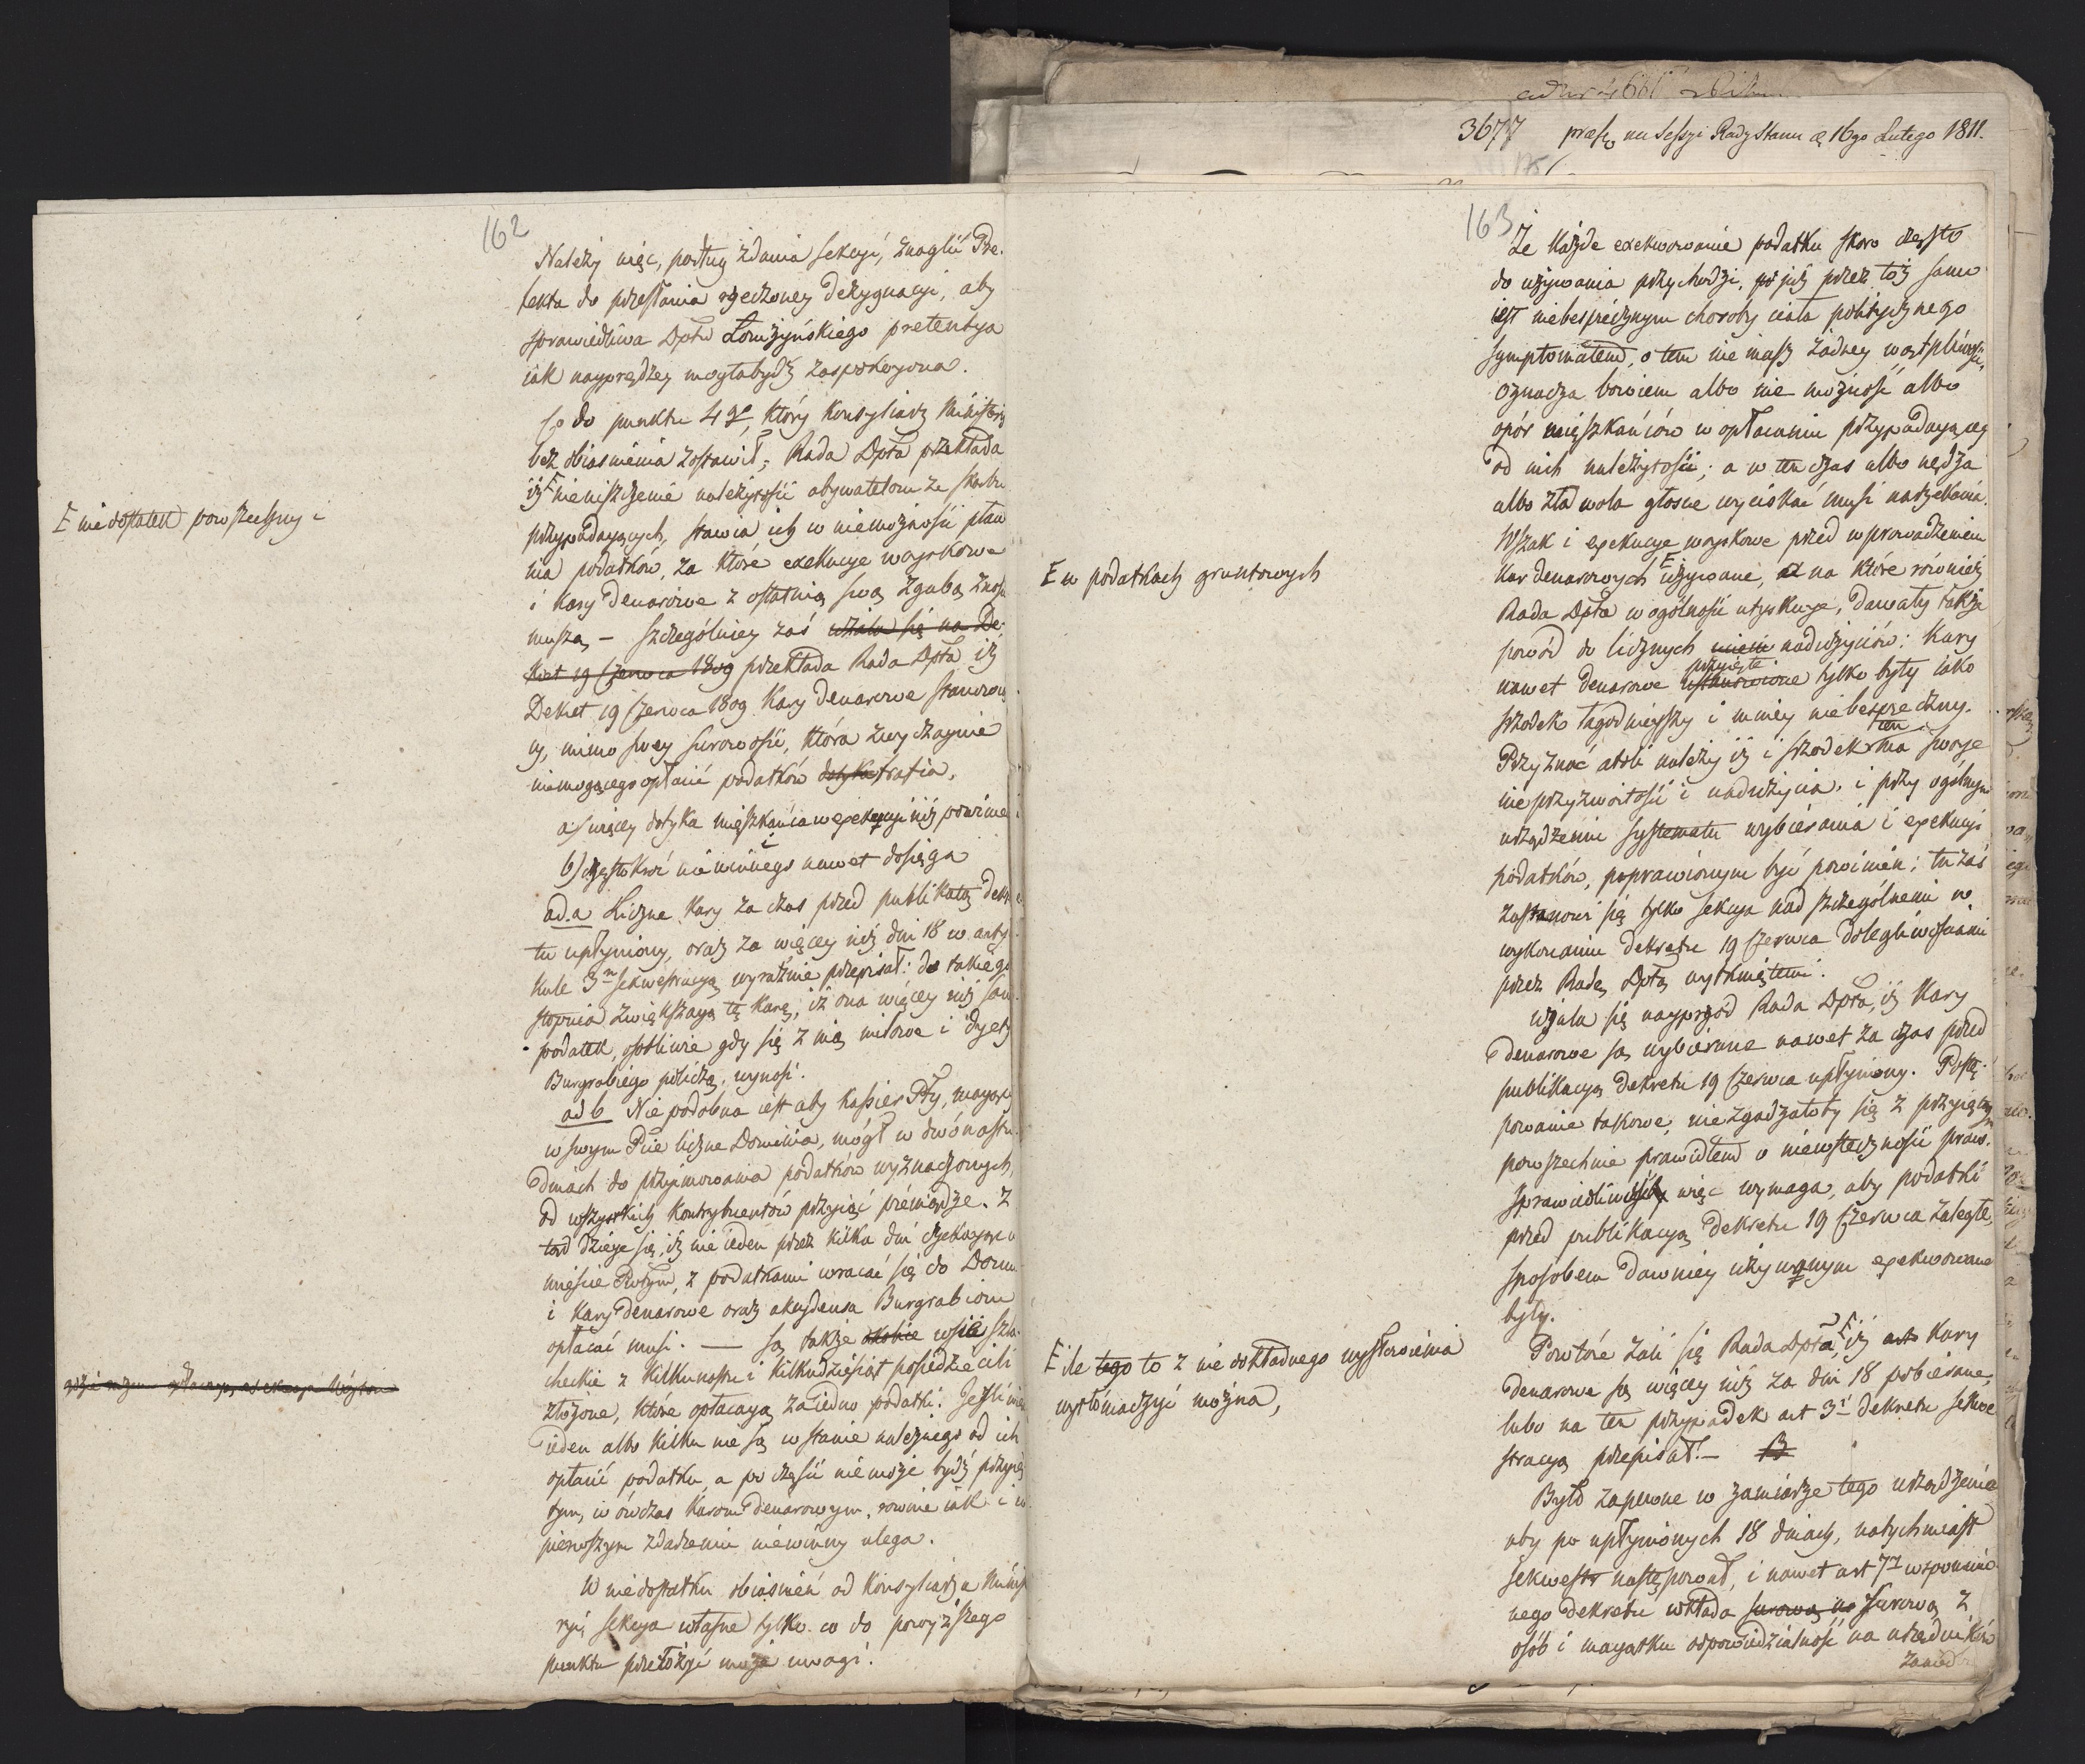 162
Należy więc, podług zdania Sekcyi, znaglić Pre-
fekta do przesłania rzeczoney Dezygnacyi, aby
sprawiedliwa Dptu Łomżyńskiego pretensya
iak nayprędzey mogła bydź zaspokoyona.
Co do punktu 4go, który Konsyliarz Ministeryi
bez obiaśnienia zostawił, Rada Dpta przekłada
iż F nieniszczenie należytości obywatelom ze Skarbu
przypadaiących, stawia ich w niemożności płace
nia podatków, za które exekucye woyskowe
i kary denarowe z ostatnią swą zgubą znosić
muszą – szczególniey zaś użala się na De-
kret 19 Czerwca 1809 przekłada Rada Dpta iż
Dekret 19 Czerwca 1809 Kary denarowe stanowią
cy, mimo swey surowości, która zwyczaynie
niemogącego opłacić podatków dotyka trafia,
a/ więcey dotyka mieszkańca w exekucyi niż powinna
b) częstokroć niewinnego nawet dosięga
ad a Liczne kary za czas przed publikatą dekre
tu upłyniony, oraz za więcey niż dni 18 w arty-
kule 3m sekwestracyą wyraźnie przepisał: do takiego
stopnia zwiększaią tę karę, iż ona więcey niż sam
podatek, osobliwie gdy się z nią milowe i dyety
Burgrabiego policzą, wynosi.
ad b Niepodobna iest aby Kassier Pty, maiący
w swym Pcie liczne Dominia, mógł w dwónastu
dniach do przyimowania podatków wyznaczonych,
od wszystkich kontrybuentów przyiąć pieniądze. Z
tąd dzieie się, iż nie ieden przez kilka dni czekaiąc w
mieście Ptowym, z podatkami wracać się do Domu
i kary denarowe oraz akcydensa Burgrabiom
opłacać musi. — Są także wsie szla-
checkie z kilkunastu i kilkudziesiąt posiedzicieli
złożone, które opłacaią za iedno podatki. Jeżeli więc
ieden albo kilku nie są w stanie należnego od ich
opłacić podatku, a po części nie może bydź przyię
tym, w ówczas karom denarowym, równie iak i w
pierwszym zdarzeniu niewinny ulega.
W niedostatku obiaśnień od Konsyliarza Minist
ryi, Sekcya własne tylko co do powyższego
punktu przełożyć może uwagi.
F niedostatek powszechny i
3677 præs. na Sessyi Rady Stanu d. 16go Lutego 1811.
163
Że każde exekwowanie podatku skoro często
do używania przychodzi, po już przez toż samo
iest niebespiecznym choroby ciała politycznego
symptomatem, o tem nie masz żadney wątpliwości,
oznacza bowiem albo nie możność albo
opór mieszkańców w opłacaniu przypadaiącey
od nich należytości; a w ten czas albo nędza
albo zła wola głosne wyciskać musi narzekania.
Wszak i exekucye woyskowe przed wprowadzeniem
kar denarowych F używane, a na które również
Rada Dpta w ogólności utyskuie, dawały także
powód do licznych nadużyciów: Kary
nawet denarowe ustanowione przyięte tylko były iako
środek łagodnieyszy i mniey niebespieczny.
Przyznać atoli należy iż i środek ten ma swoie
nieprzyzwoitości i nadużycia, i przy ogólnym
urządzeniu systematu wybierania i exekucyi
podatków, poprawionym być powinien; tu zaś
zastanowi się tylko Sekcya nad szczególnemi w
wykonaniu Dekretu 19 Czerwca dolegliwościami
przez Radę Dptą wytkniętemi.
Użala się nayprzód Rada Dpta, iż Kary
denarowe są wybierane nawet za czas przed
publikacyą Dekretu 19 Czerwca upłyniony. Postę-
powanie takowe, nie zgadzałoby się z przyiętym
powszechnie prawidłem o niewsteczności praw.
Sprawiedliwość więc wymaga, aby podatki
przed publikacyą Dekretu 19 Czerwca zaległe,
sposobem dawniey używanym exekwowane
były.
Powtóre żali się Rada Dpta, F iż kary
denarowe są więcey niż za dni 18 pobierane,
lubo na ten przypadek art 3i dekretu sekwe
stracyą przepisał. –
Było zapewne w zamiarze tego urządzenia
aby po upłynionych 18 dniach, natychmiast
sekwestr następował, i nawet art 7my wspomnio
nego Dekretu wkłada surową na surową z
osób i maiątku odpowiedzialność na urzędników
zanied
F w podatkach gruntowych
F ile tego to z niedokładnego wysłowienia
wytłómaczyć można,